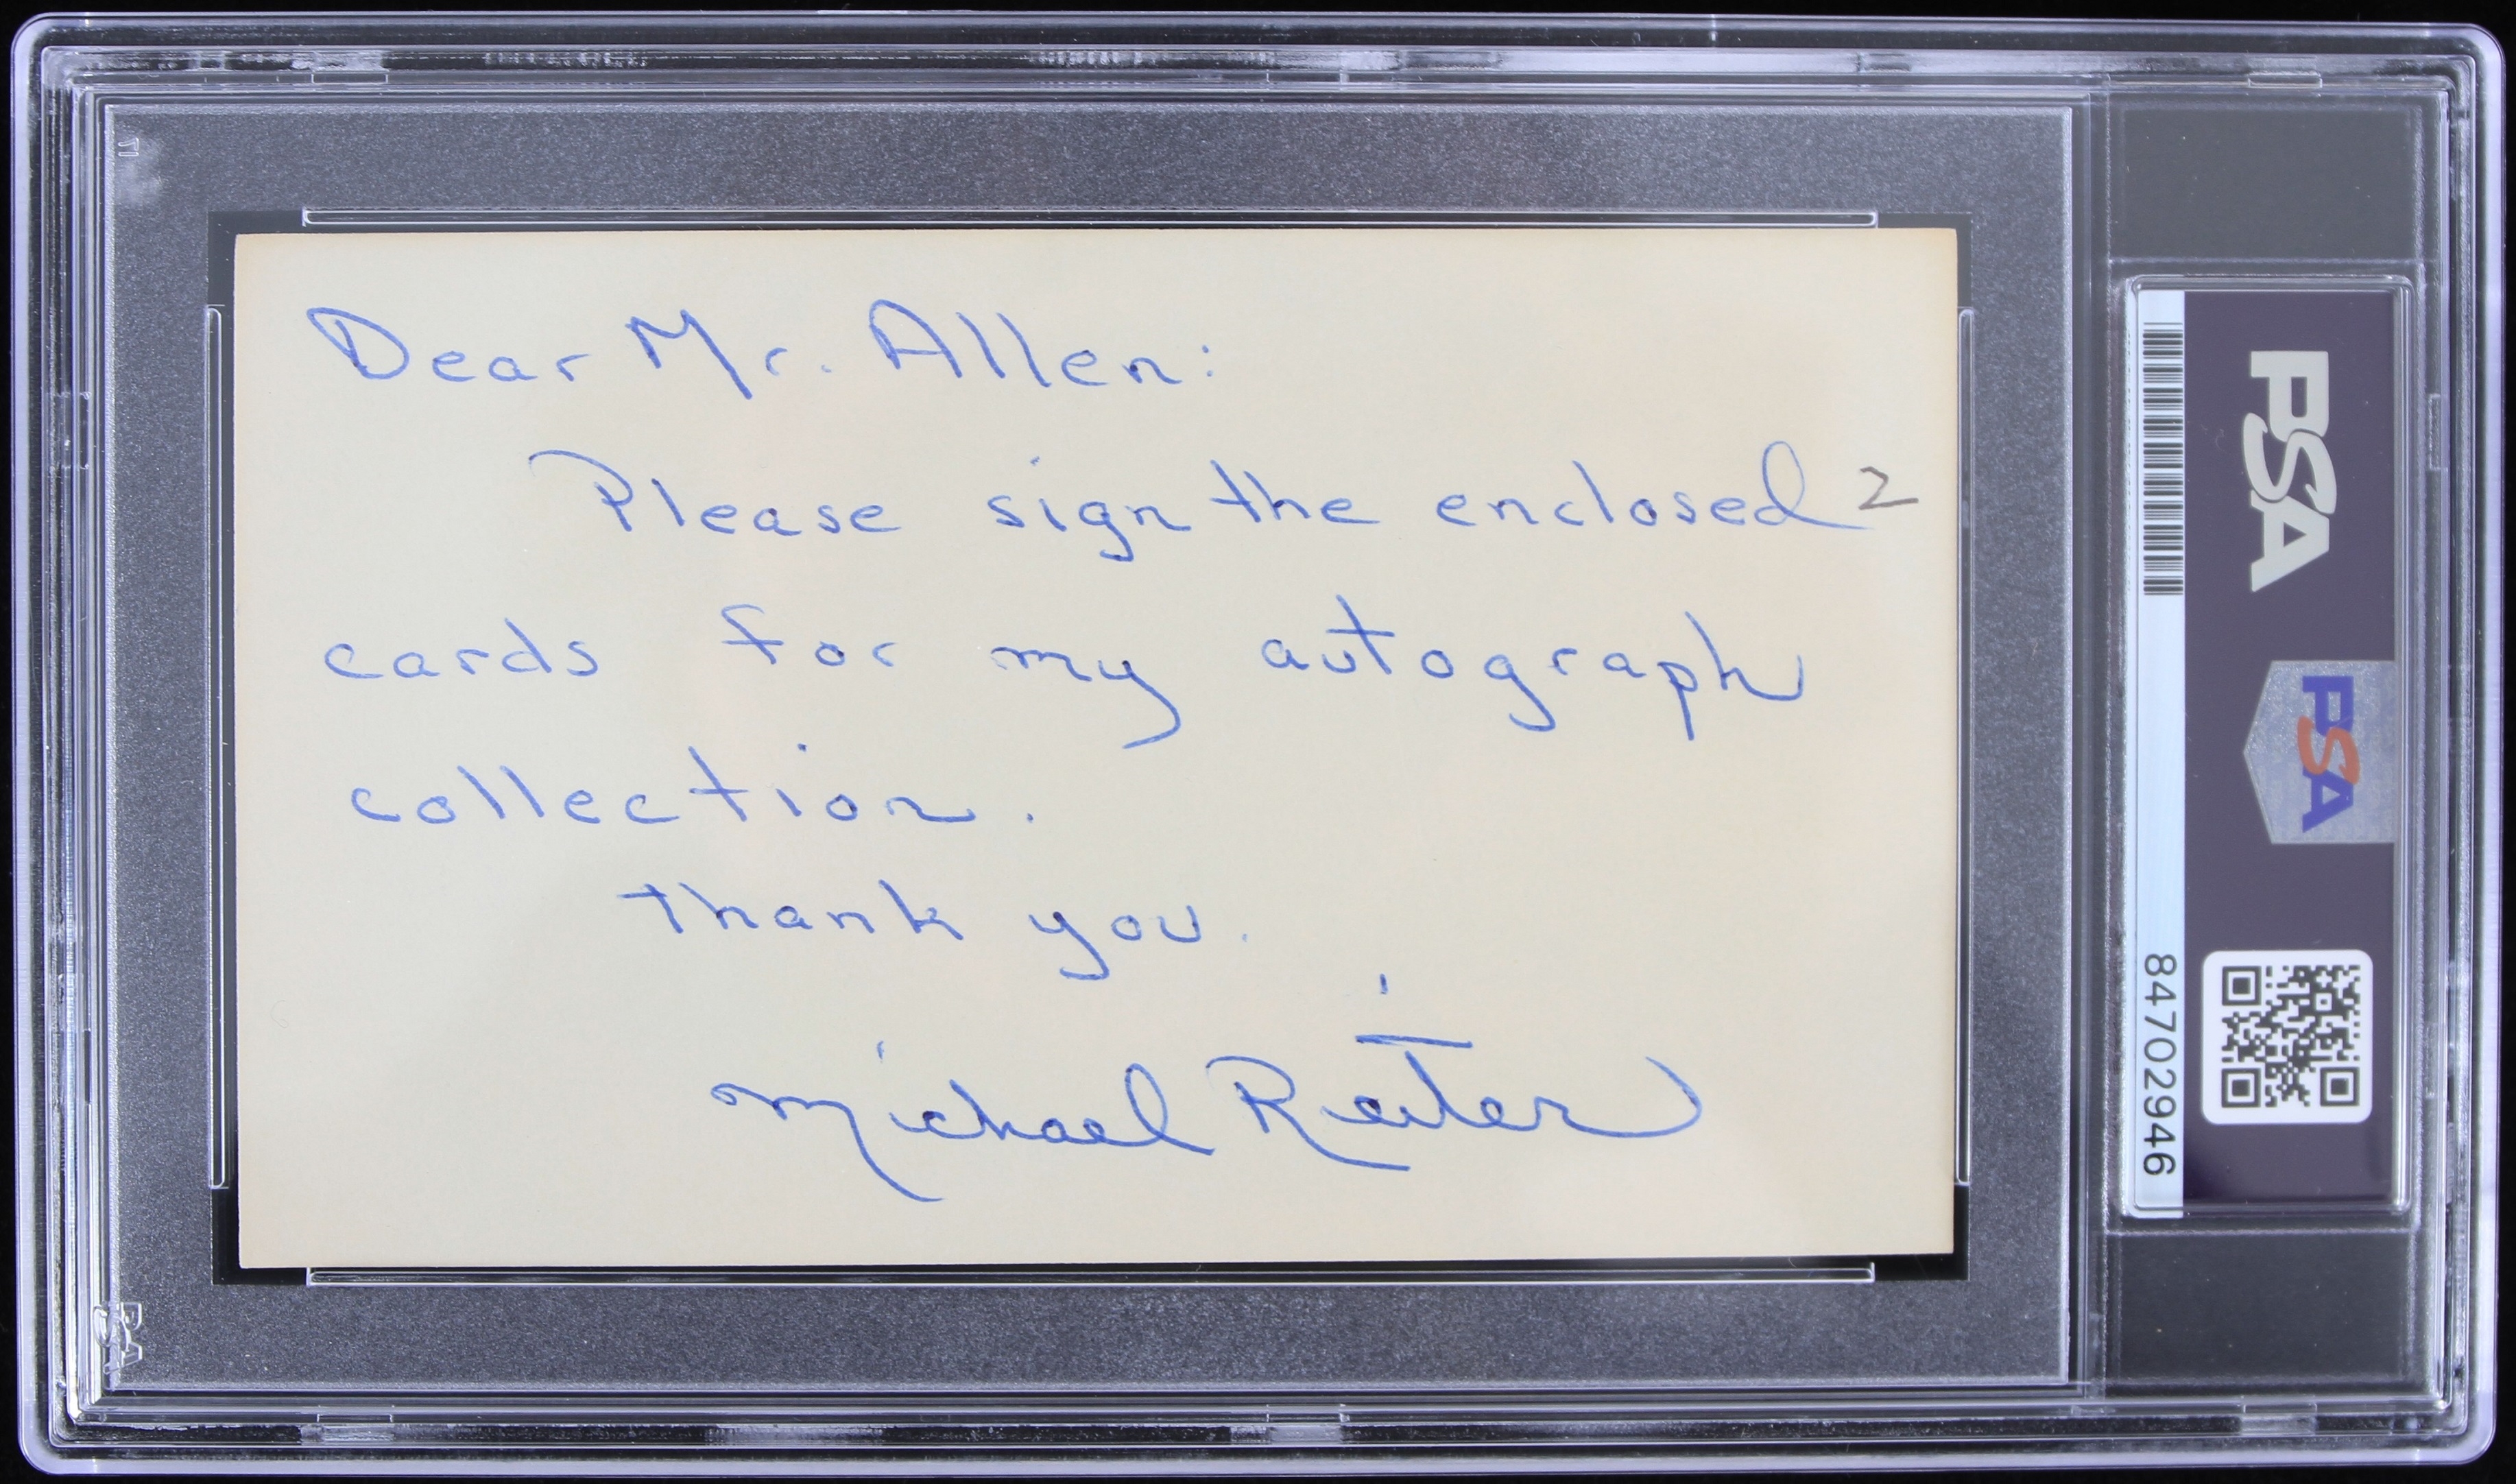 Dear Mr. Allen:
Please sign the enclosed 2
cards for my autograph
collection.
Thank you.
Michael Reiter
PSA
PSA
84702946
PSA